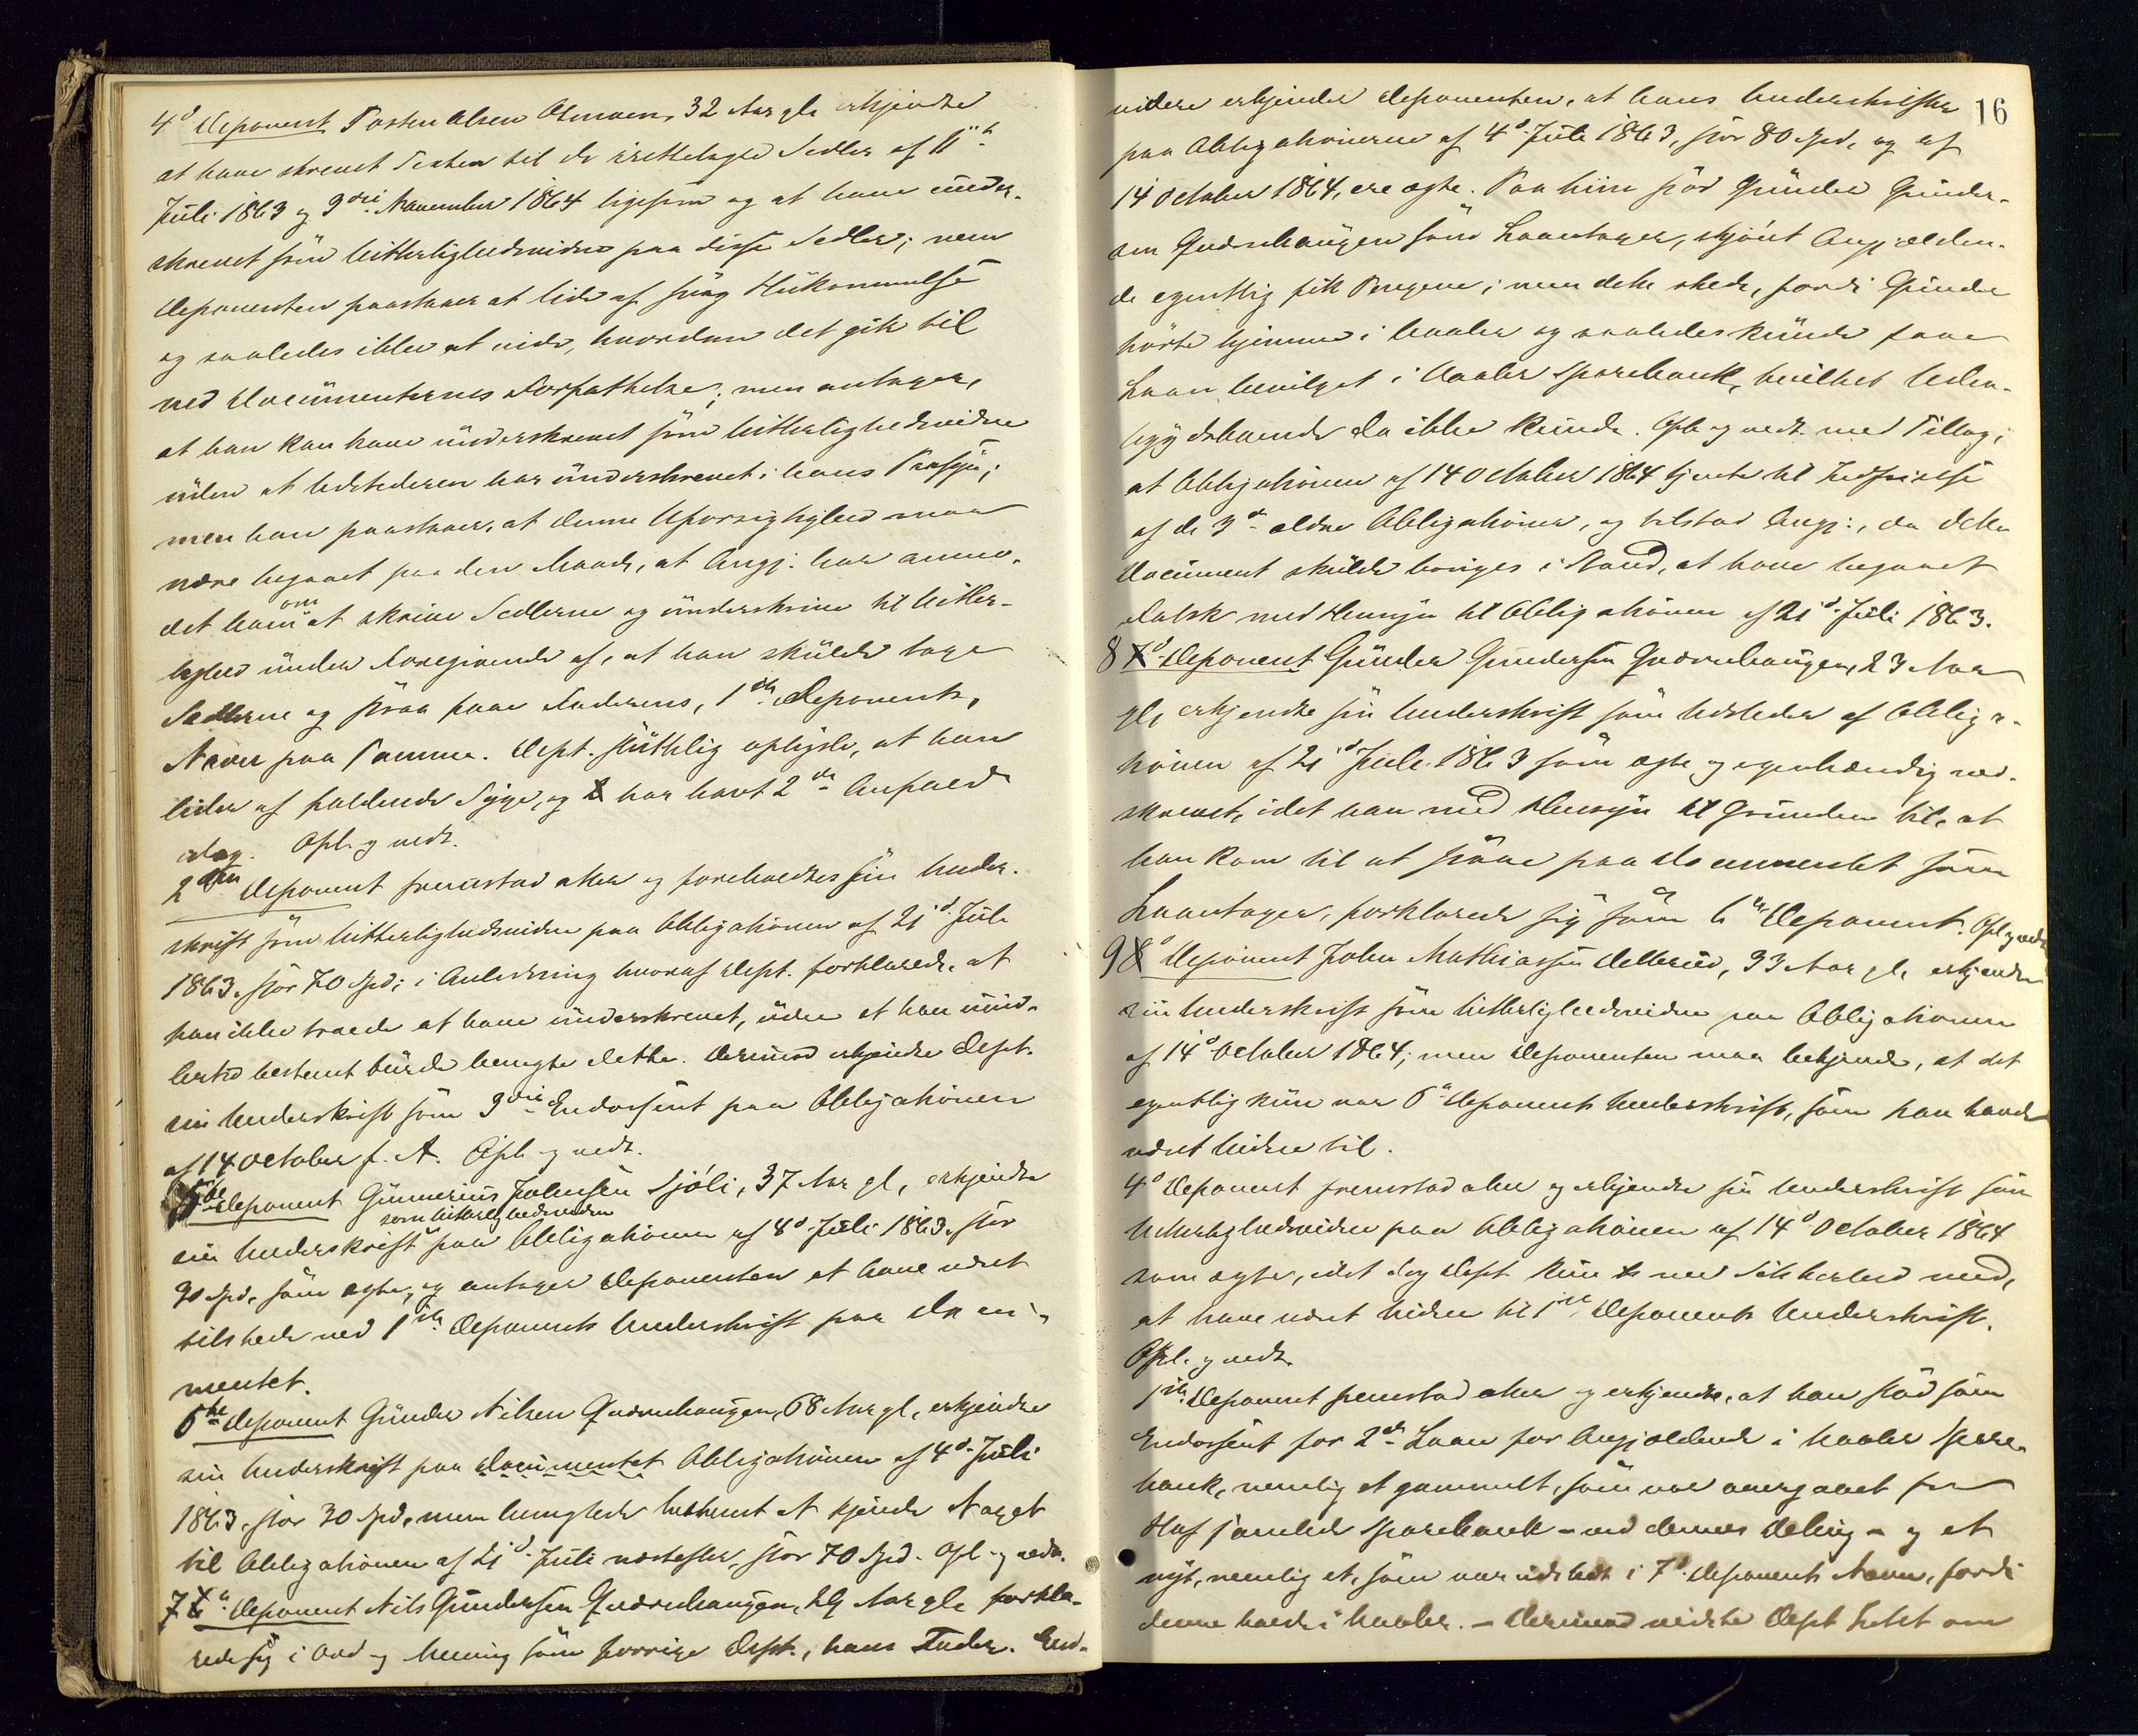 4d Deponent Posten Olsen Osmoen, 32 Aar gl. erkjendte
at have skrevet Texten til de irettelagte Sedler af 11te
Juli 1863 og 3die November 1864 ligesom og at have under-
skrevet som Vitterlighedsvidne paa disse Sedler; men
Deponenten paastaaer at lide af svag Hukommelse
og saaledes ikke at vide, hvordan det gik til
ved Documenternes Forfattelse; men antager,
at han kan have underskrevet som Vitterlighedsvidne
uden at Udstederen har underskrevet i hans Paasyn;
men han paastaaer, at denne Uforsigtighed maa
være begaaet paa den Maade, at Angj. har anmo-
det ham om at skrive Sedlerne og underskrive til Vitter-
lighed under Foregivende af, at han skulde tage
Sedlerne og saa faae Faderens, 1ste Deponents,
Navn paa samme. Dept. sluttelig oplyste, at han
lider af faldende Syge, og har havt 2de Anfald
idag. Opl. og vedt.
2den Deponent fremstod atter og foreholdtes sin Under-
skrift som Vitterlighedsvidne paa Obligationen af 21d Juli
1863, stor 70 Spd; i Anledning hvoraf Dept. forklarede, at
han ikke troede at have underskrevet, uden at han imid-
lertid bestemt turde benegte dette. Derimod erkjendte Dept.
sin Underskrift som 3die Endossent paa Obligationen
af 14 October f. A. Opl. og vedt.
5te Deponent Gunnerius Johnsen Sjøli, 37 Aar gl, erkjendte
sin Underskrift som Vitterlighedsvidne paa Obligationen af 4d Juli 1863, stor
30 Spd, som ægte, og antager Deponenten at have været
tilstede ved 1ste Deponents Underskrift paa Docu-
mentet.
6te Deponent Gunder Nilsen Qværnhaugen, 68 Aar gl, erkjendte
sin Underskrift paa Documentet Obligationen af 4d Juli
1863, stor 30 Spd, men benegtede bestemt at kjende Noget
til Obligationen af 21d Juli næstefter, stor 70 Spd. Opl. og vedt.
7de Deponent Nils Gundersen Qværnhaugen, 29 Aar gl. forkla-
rede sig i Ord og Mening som forrige Dept., hans Fader. End-
16
videre erkjender Deponenten, at hans Underskrifter
paa Obligationerne af 4d Juli 1863, stor 80 Spd, og af
14 October 1864, ere ægte. Paa hiin stod Gunder Gunder-
sen Qværnhaugen som Laantager, skjønt Angjælden-
de egentlig fik Pengene; men dette skede, fordi Gunder
hørte hjemme i Vaaler og saaledes kunde faae
Laan bevilget i Vaaler Sparebank, hvilket Uden-
bygdsboende da ikke kunde. Opl. og vedt. med Tillæg,
at Obligationen af 14 October 1864 tjente til Indfrielse
af de 3de ældre Obligationer, og tilstod Angj., da dette
Document skulde bringes i Stand, at have begaaet
Falsk med Hensyn til Obligationen af 21d Juli 1863.
8de Deponent Gunder Gundersen Qværnhaugen, 23 Aar
gl, erkjendte sin Underskrift som Udsteder af Obliga-
tionen af 21d Juli 1863 som ægte og egenhændig ned-
skrevet, idet han med Hensyn til Grunden til, at
han kom til at staae paa Documentet som
Laantager, forklarede sig som 6te Deponent. Opl. og vedt.
9d Deponent John Mathiassen Melterud, 33 Aar gl, erkjendte
sin Underskrift som Vitterlighedsvidne paa Obligationen
af 14d October 1864; men Deponenten maa bekjende, at det
egentlig kun var 6te Deponents Underskrift, som han havde
været Vidne til.
4d Deponent fremstod atter og erkjendte sin Underskrift som
Vitterlighedsvidne paa Obligationen af 14d October 1864
som ægte, idet dog Dept. kun med Sikkerhed veed,
at have været Vidne til 1ste Deponents Underskrift.
Opl. og vedt.
1ste Deponent fremstod atter og erkjendte, at han stod som
Endossent for 2de Laan for Angjældende i Vaaler Spare-
bank, nemlig et gammelt, som var overgaaet fra
Hof samlede Sparebank - ved dennes Deling - og et
nyt, nemlig et, som var udstedt i 7d Deponents Navn, fordi
denne boede i Vaaler. - Derimod vidste Dept. Intet om